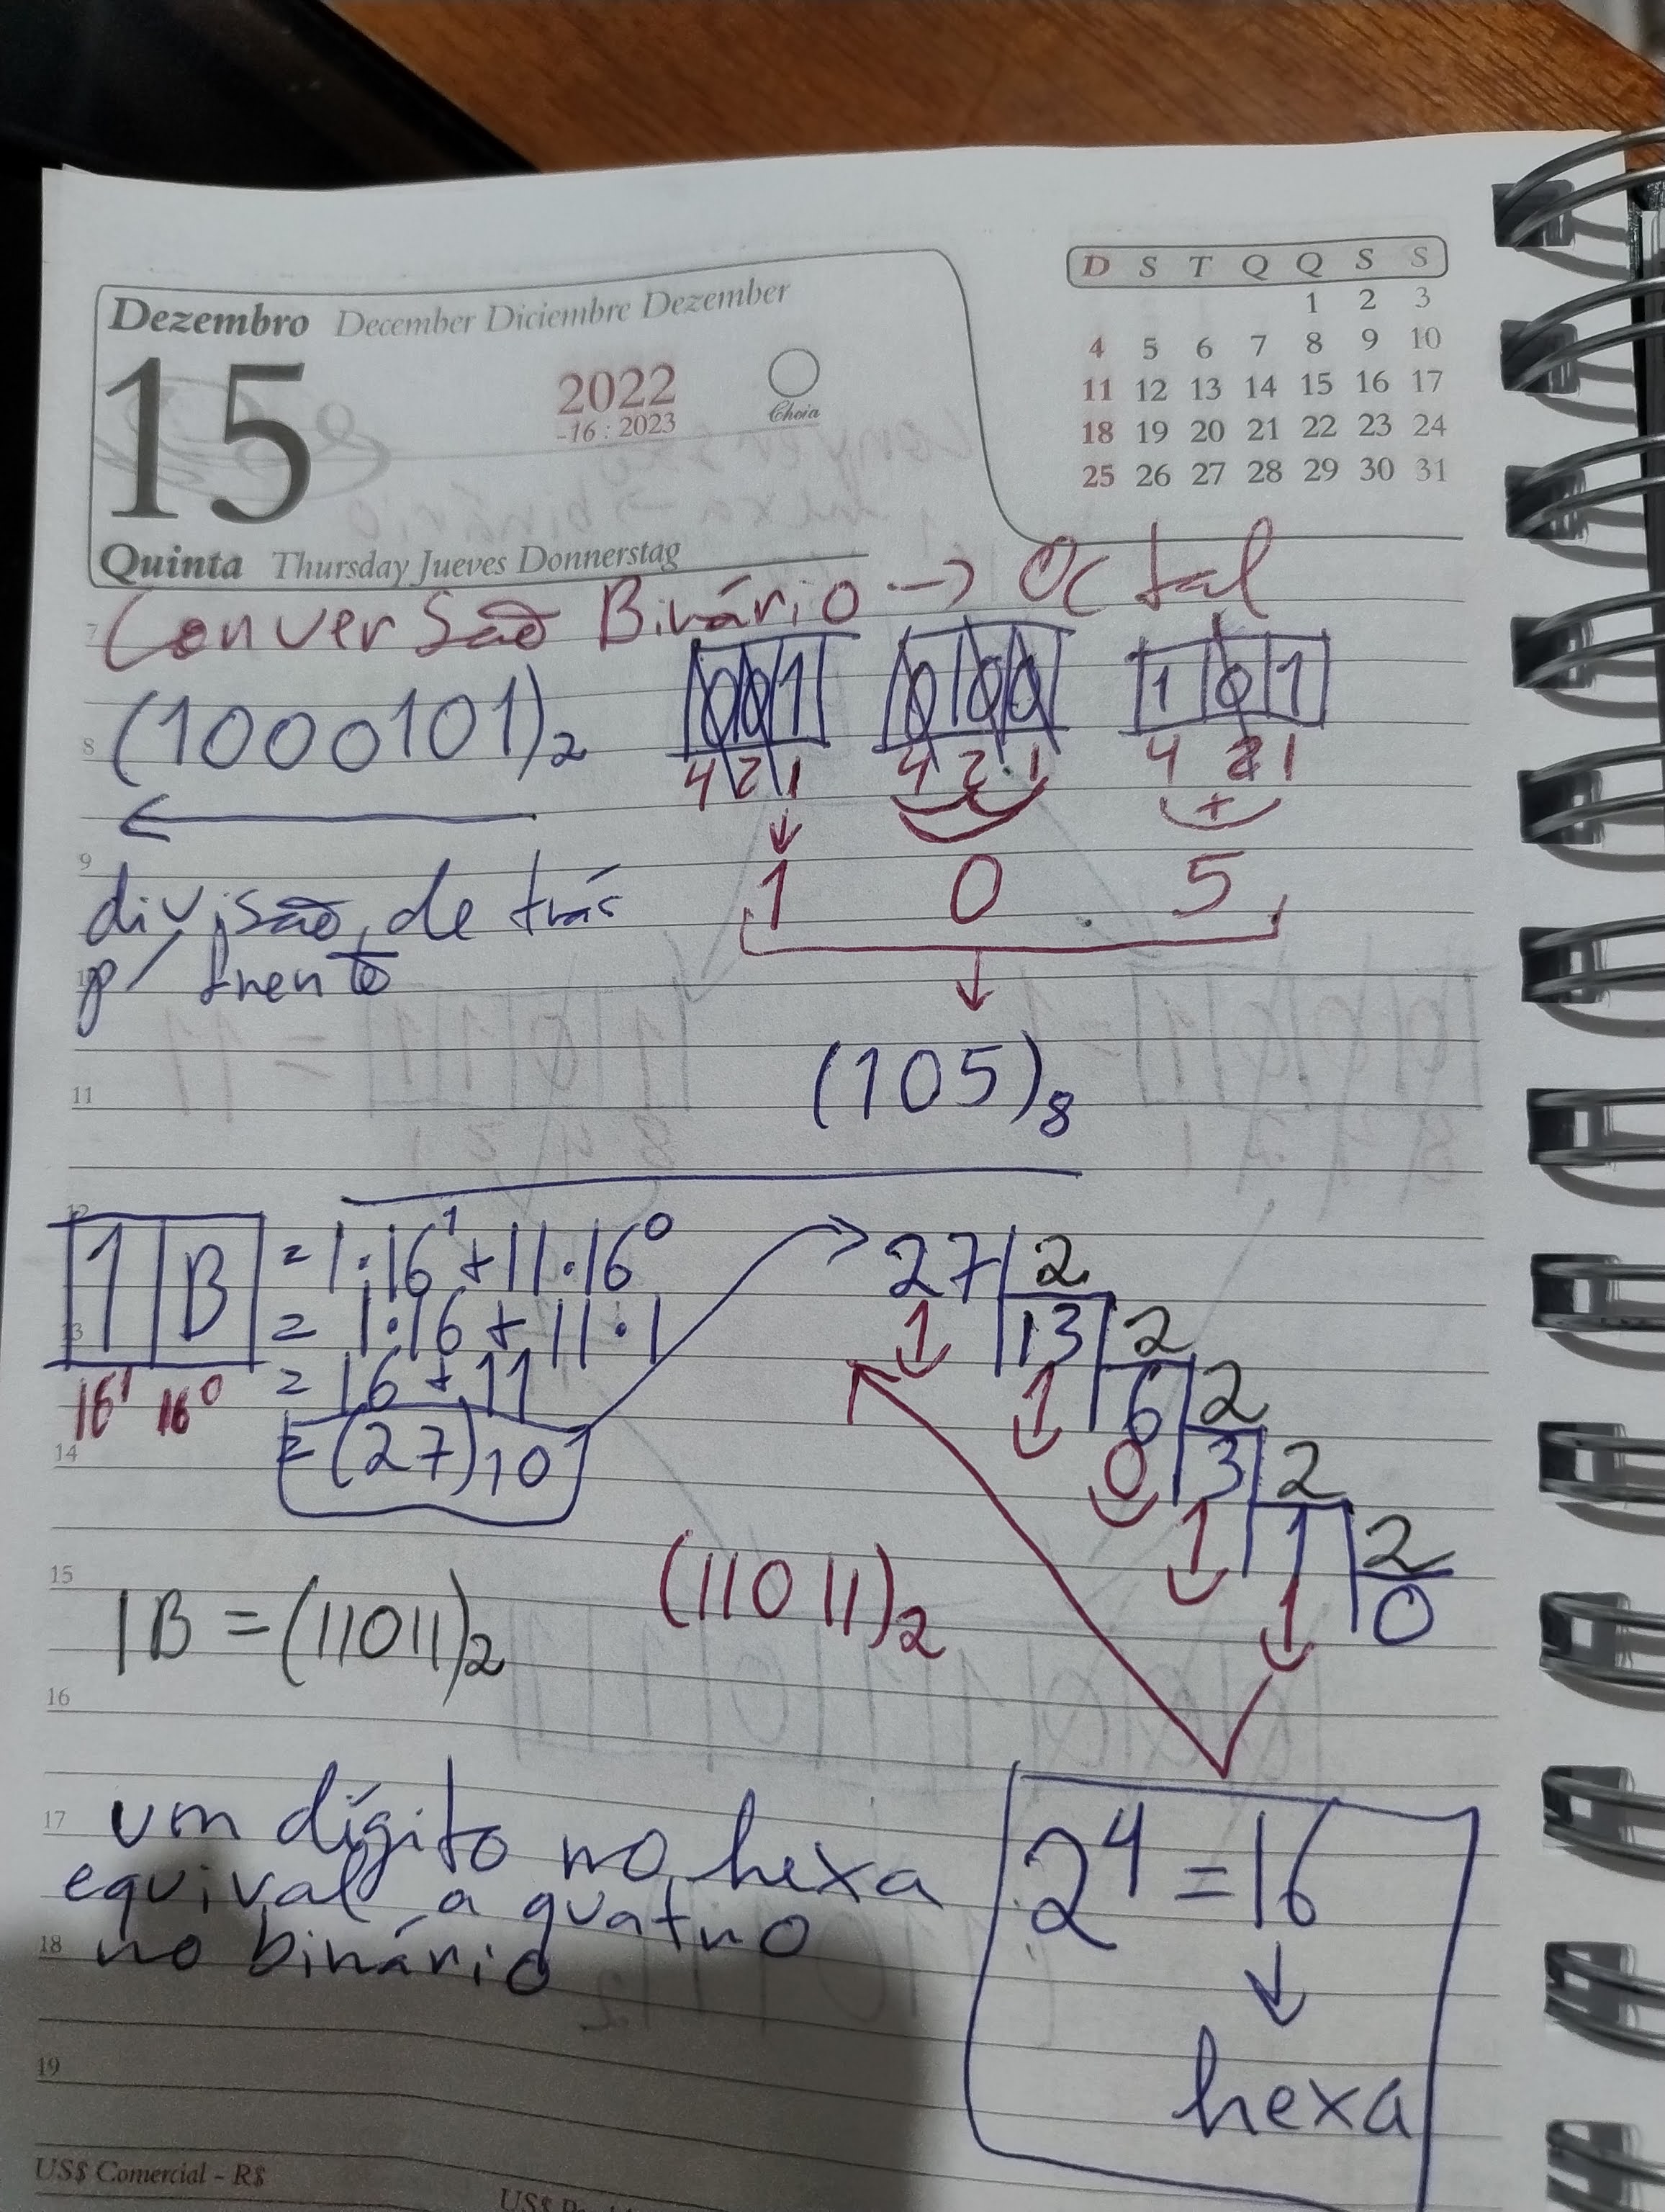 Dezembro December Diciembre Dezember
15
2022
-16 : 2023
Cheia
Quinta Thursday Jueves Donnerstag
D S T Q Q S S
1 2 3
4 5 6 7 8 9 10
11 12 13 14 15 16 17
18 19 20 21 22 23 24
25 26 27 28 29 30 31
Conversão Binário -> Octal
7
(1000101)₂ 001 000 101
8
4 2 1 4 2 1 4 2 1
+
9
1 0 5
divisão de trás
p/ frente
(105)₈
11
12
1 B = 1·16¹ + 11·16⁰
13
= 1·16 + 11·1
16¹ 16⁰ = 16 + 11
14
= (27)10
27 2
1 13 2
1 6 2
0 3 2
1 1 2
1 0
15
1B = (11011)₂ (11011)₂
16
17
um dígito no hexa
equival a quatro
18
no binário
2⁴ = 16
↓
hexa
19
US$ Comercial - R$